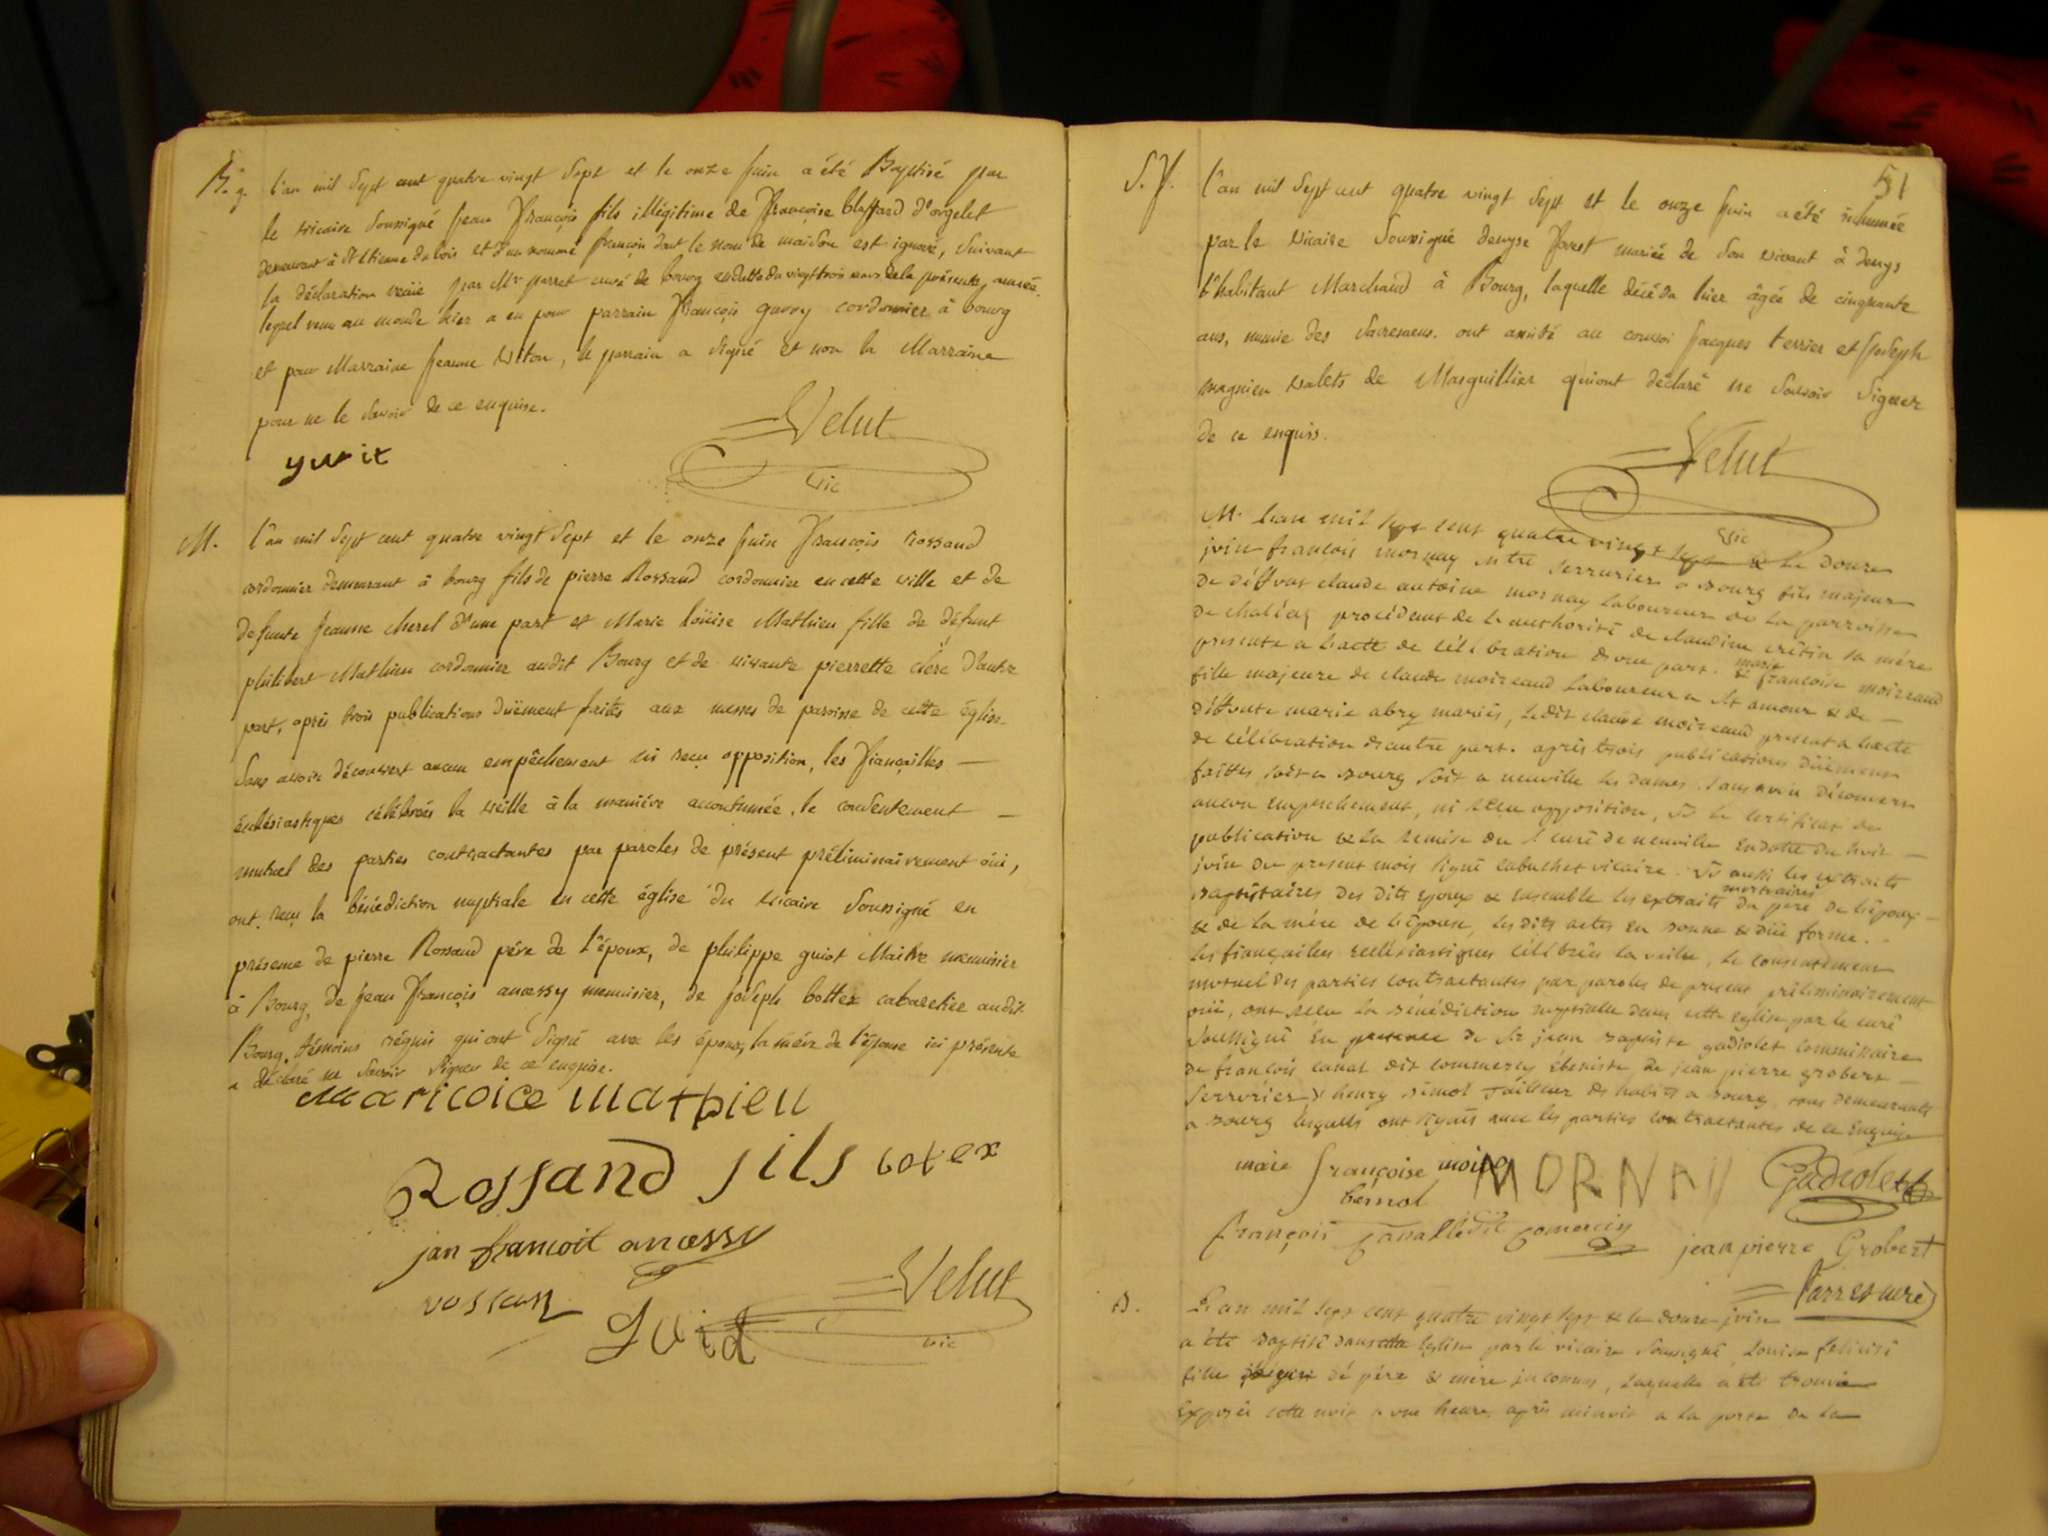 B. g.
l'an mil sept cent quatre vingt sept et le onze juin a été Baptisé par
le vicaire soussigné jean François fils illégitime de Françoise blaffard d'orgelet
demeurant à St Etienne du bois et d'un nommé françois dont le nom de maison est ignoré, suivant
la déclaration reçüe par Mr parret curé de bourg en datte du vingt trois mars de la présente année.
lequel venu au monde hier a eu pour parrain François guvoy cordonnier à bourg
et pour Marraine jeanne viton, le parrain a signé et non la Marraine
pour ne le savoir de ce enquise.
Velut
vic
M.
l'an mil sept cent quatre vingt sept et le onze juin François rossand
cordonnier demeurant à bourg fils de pierre Rossand cordonnier en cette ville et de
defunte jeanne cherel d'une part et Marie loüise Mathieu fille de défunt
philibert Mathieu cordonnier audit Bourg et de vivante pierrette clere d'autre
part, après trois publications düement faites aux messes de paroisse de cette église
sans avoir découvert aucun empêchement ni reçu opposition, les fiançailles —
ecclésiastiques célébrées la veille à la manière accoutumée, le consentement —
mutuel des parties contractantes par paroles de présent préliminairement oüi,
ont reçu la bénédiction nuptiale en cette église du vicaire soussigné en
présence de pierre Rossand père de l'époux, de philippe guiot Maitre menuisier
à Bourg, de jean François ancessy menuisier, de joseph bottex cabaretier audit
Bourg, témoins réquis qui ont signé avec les époux, la mère de l'épouse ici présente
a déclaré ne savoir signer de ce enquise.
mathieu
Rossand fils botex
jan francoit ancessy
Velut
vic
51
S. P.
l'an mil sept cent quatre vingt sept et le onze juin a été inhumée
par le vicaire soussigné denyse Forest mariée de son vivant à denys
l'habitant Marchand à Bourg, laquelle décéda hier âgée de cinquante
ans, munie des sacremens. ont assisté au convoi jacques terrier et joseph
magnien valets de Marguillier qui ont déclaré ne savoir signer
de ce enquis.
Velut
vic
M. L'an mil sept cent quatre vingt sept & le douze
juin françois mornay mtre serrurier a bourg fils majeur
de deffunt claude antoine mornay laboureur de la parroisse
de chaliey procédent de l'authorité de claudine crêtin sa mère
presente a l'acte de célébration d'une part. & marie françoise moireaud
fille majeure de claude moireaud laboureur a St amour & de —
deffunte marie abry mariés, ledit claude moireaud present a l'acte
de célébration d'autre part. après trois publications düement
faittes soit a bourg soit a neuville les dames sans avoir découvert
aucun empechement, ni reçu opposition, vû le certificat de
publication & la remise du S curé de neuville en datte du huit —
juin du present mois signé cabuchet vicaire. vû aussi les extraits
baptistaires des dits epoux & ensemble les extraits mortuaires du père de l'époux —
& de la mère de l'épouse, lesdits actes en bonne & düe forme. .
les fiançailles ecclésiastiques célébrées la veille, le consentement
mutuel des parties contractantes par paroles de present préliminairement
oüi, ont reçu la bénédiction nuptiale dans cette eglise par le curé
soussigné en presence de Sr jean baptiste gadiolet commissaire
de françois canat dit commercy ébéniste, de jean pierre grobert —
serrurier & henry bernol tailleur de habits a bourg, tous demeurants
a bourg lesquels ont signés avec les parties contractantes de ce enquis
marie françoise moireau MORNAY Gadiolet
bernol
françois dit comercy jean pierre Grobert
Parret curé
B.
L'an mil sept cent quatre vingt sept & le douze juin
a été baptisé dans cette eglise par le vicaire soussigné, Louise félicité
fille de père & mère inconnus, laquelle a été trouvée
exposée cette nuit a une heure après minuit a la porte de la